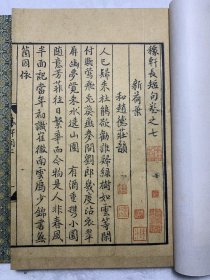 稼軒長短句卷之七
新荷葉
和趙德莊韻
人已歸來杜鵑欲勸誰歸綠樹如雲等閒
付與鶯飛兔葵燕麥問劉郎幾度沾衣翠
屏幽夢覺來水繞山圍 有酒重攜小園
隨意芳菲往日繁華而今物是人非春風
半面記當年初識崔徽南雲鴈少錦書無
箇因依